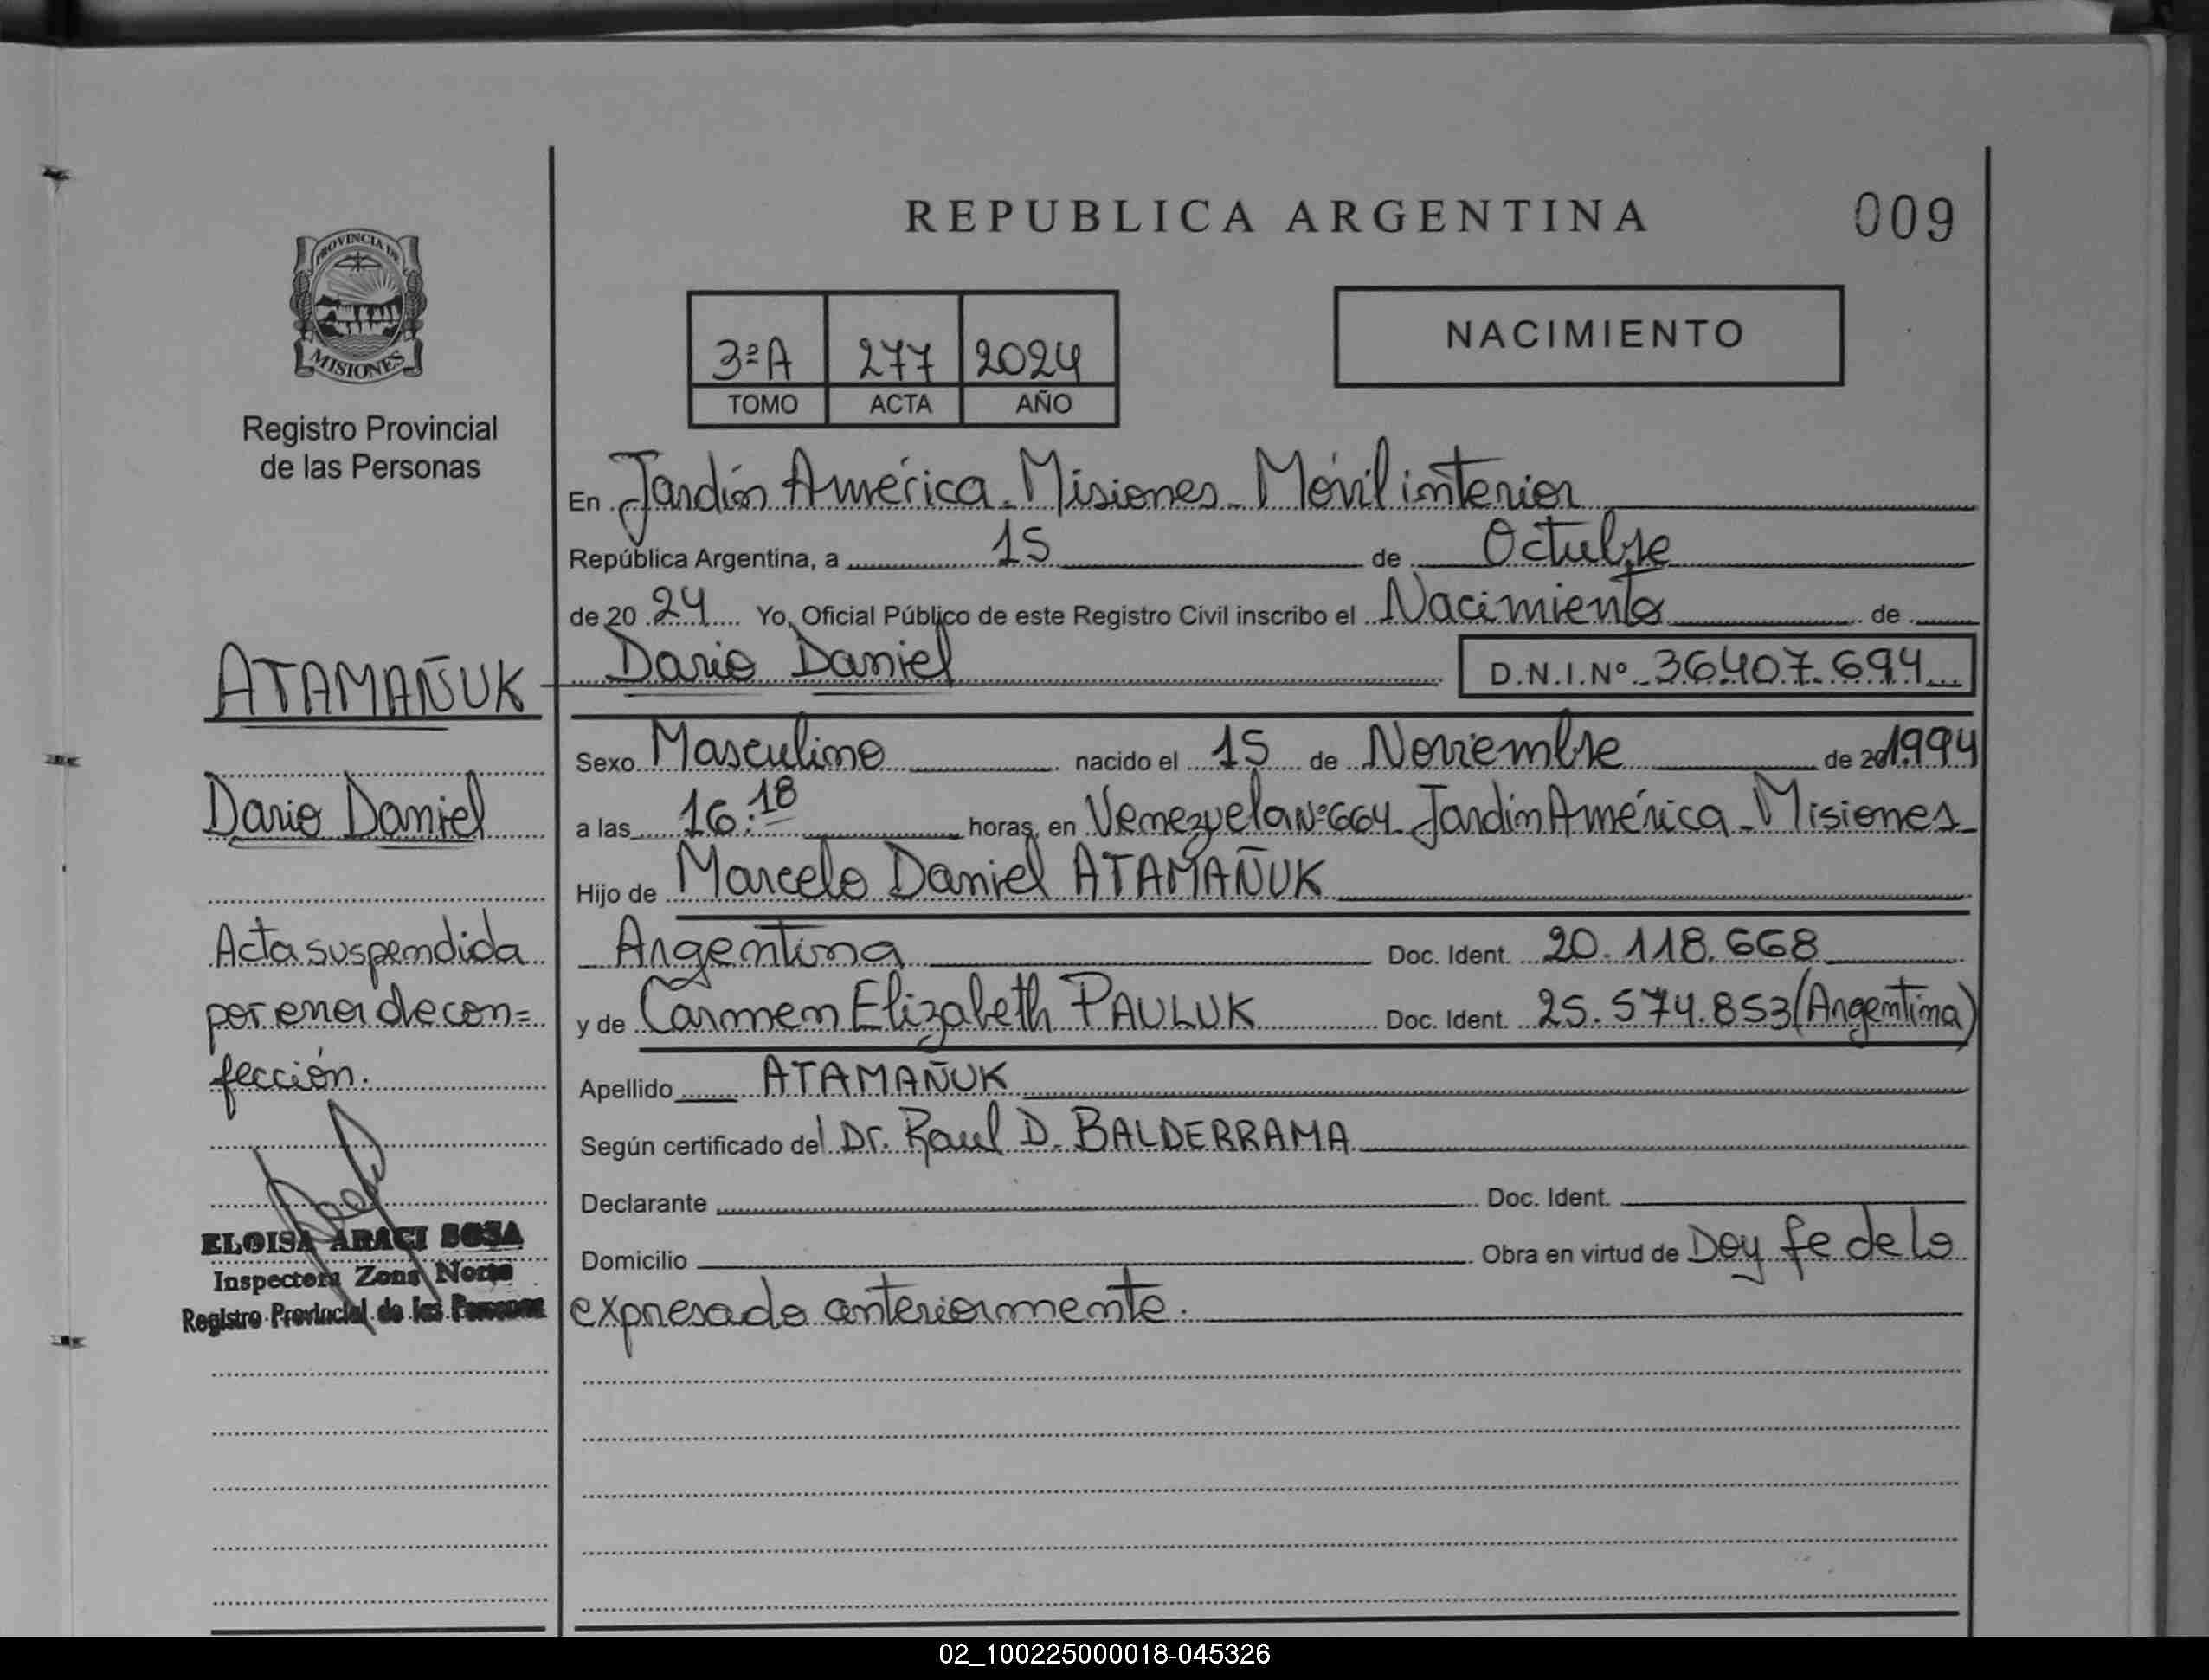 REPUBLICA ARGENTINA
009
PROVINCIA DE
MISIONES
Registro Provincial
de las Personas
3ª A 277 2024
TOMO ACTA AÑO
NACIMIENTO
En Jardín América. Misiones. Móvil interior
República Argentina, a 15 de Octubre
de 20 24 Yo, Oficial Público de este Registro Civil inscribo el Nacimiento de
ATAMAÑUK
Dario Daniel D.N.I.Nº 36.407.694
Dario Daniel
Sexo Masculino nacido el 15 de Noviembre de 20 1994
a las 16:18 horas, en Venezuela Nº 664 Jardín América - Misiones
Hijo de Marcelo Daniel ATAMAÑUK
Argentina Doc. Ident. 20.118.668
y de Carmen Elizabeth PAULUK Doc. Ident. 25.574.853 (Argentina)
Apellido ATAMAÑUK
Según certificado del Dr. Raul D. BALDERRAMA
Declarante Doc. Ident.
Domicilio Obra en virtud de Doy fe de lo
expresado anteriormente.
Acta suspendida
por error de con=
fección.
ELOISA ARACI SOSA
Inspectora Zona Norte
Registro Provincial de las Personas
02_100225000018-045326